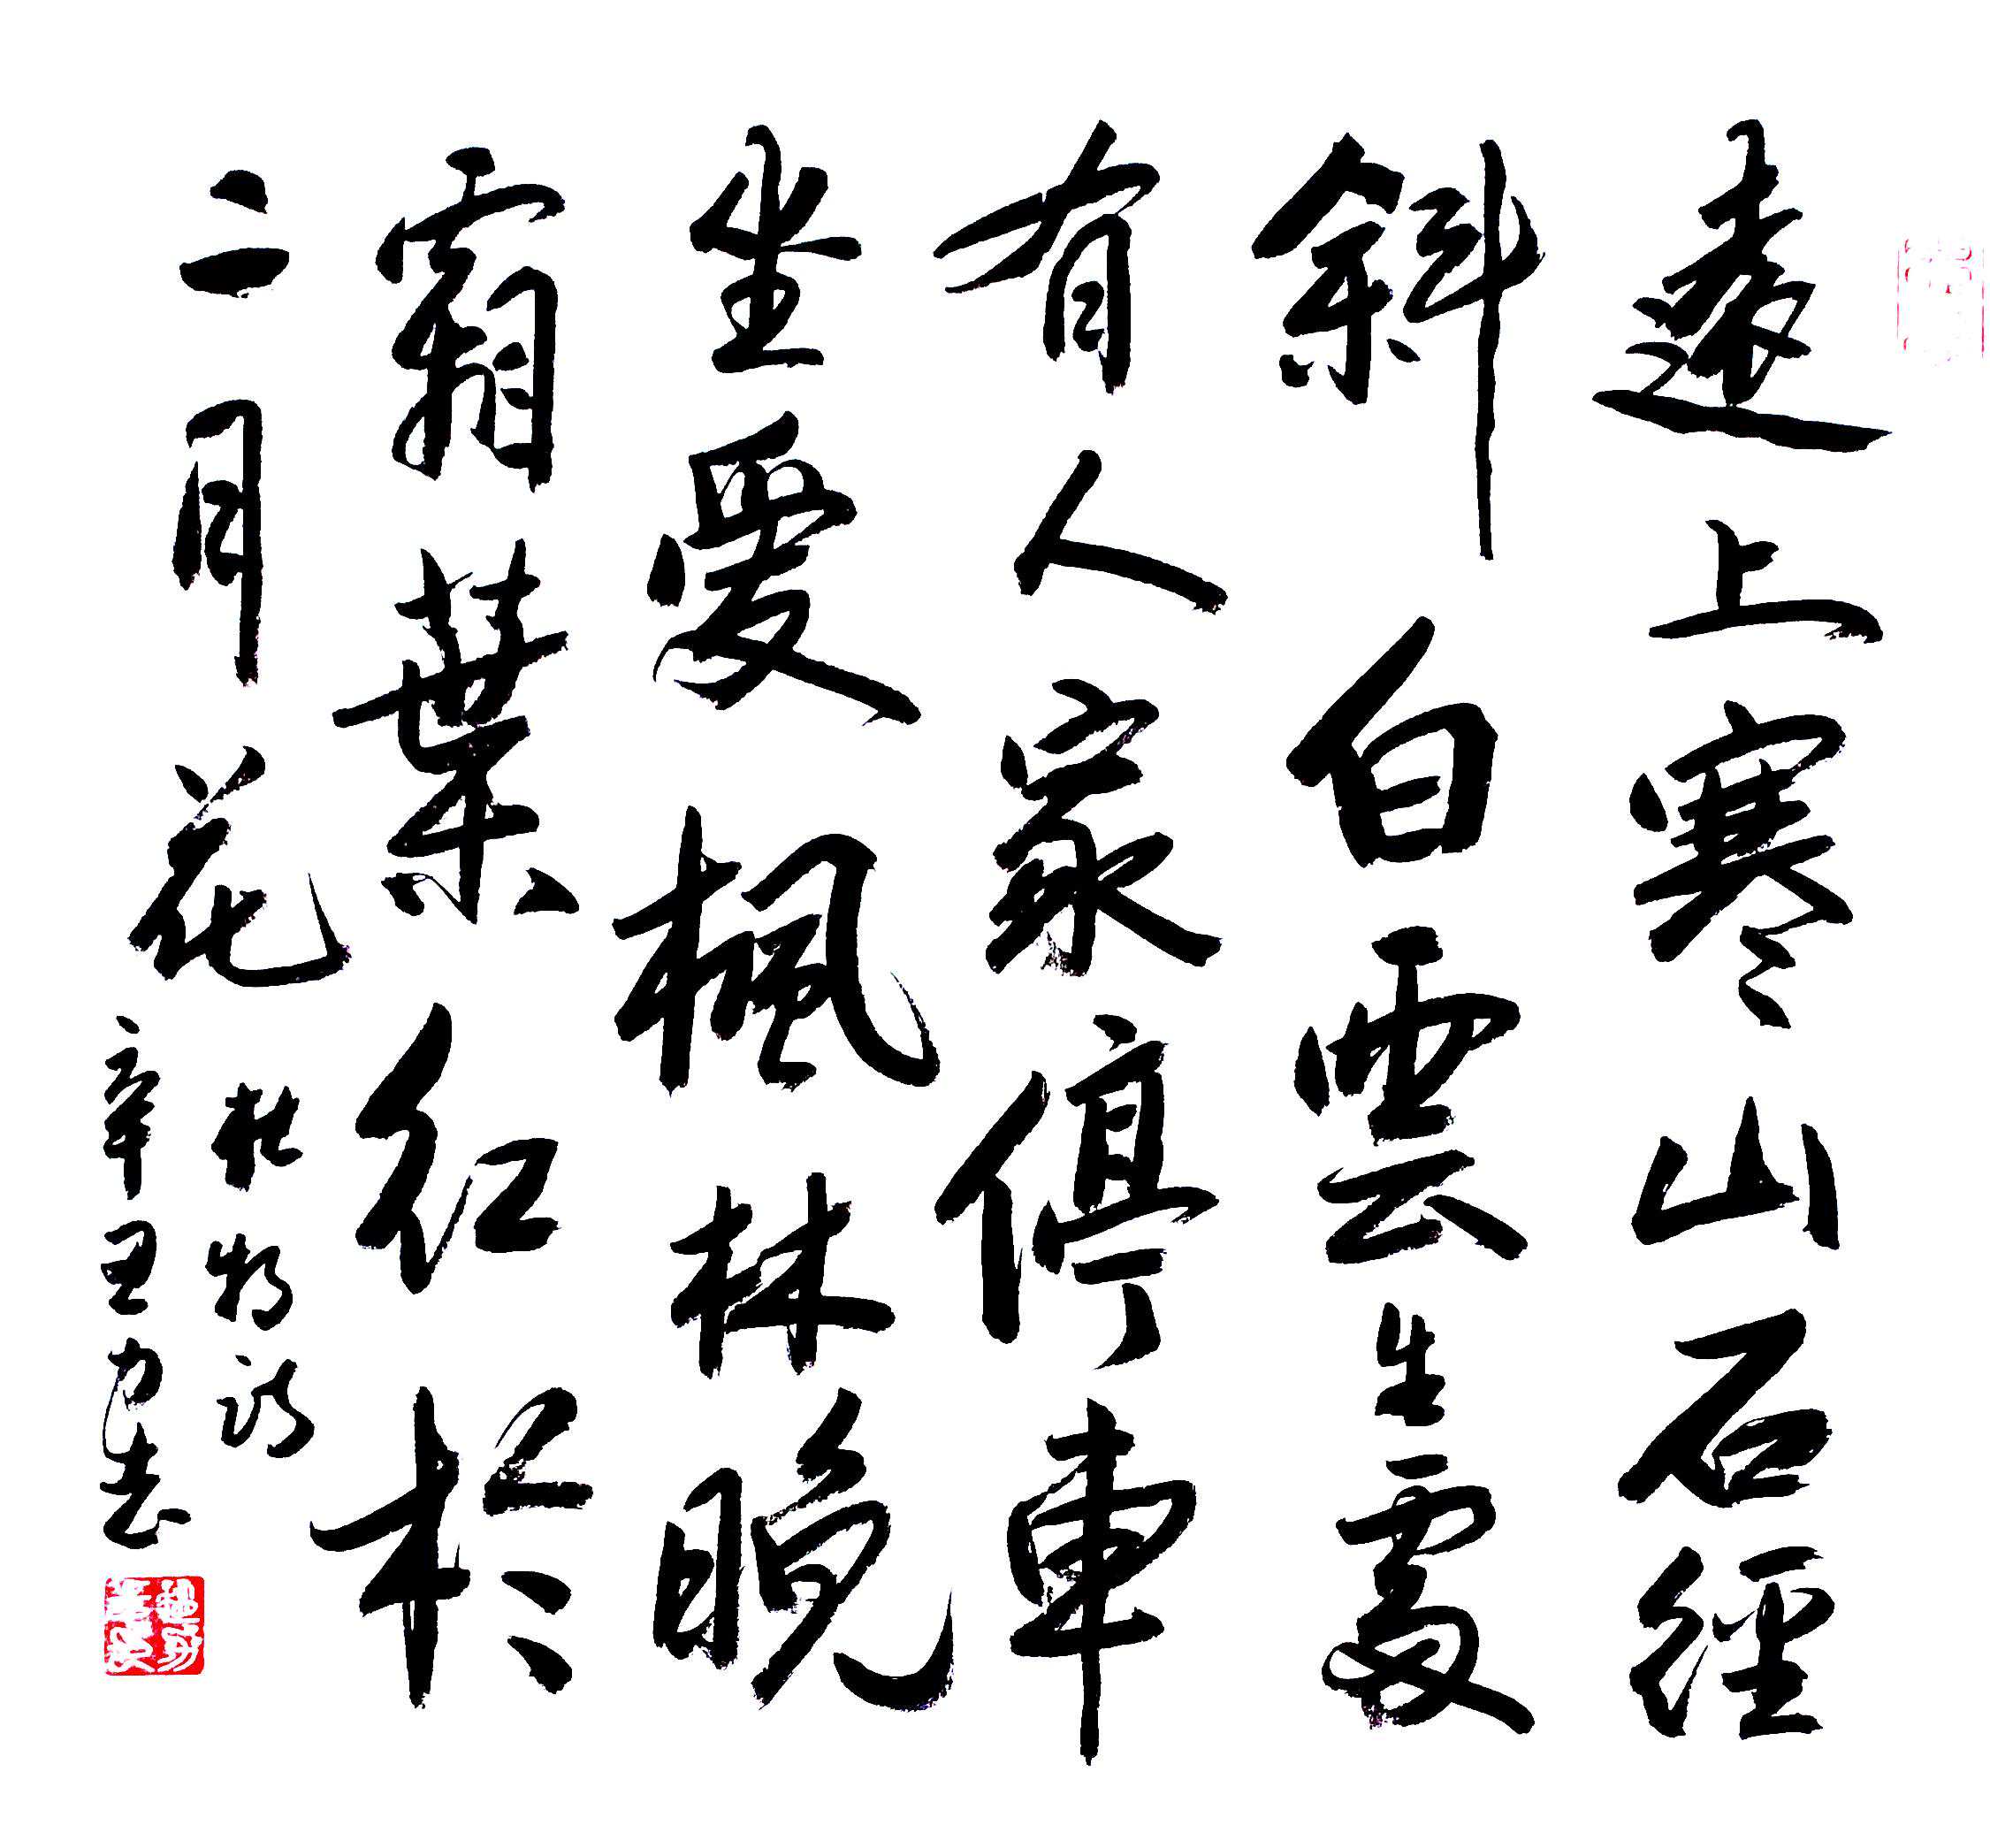 遠上寒山石徑
斜白雲生處
有人家停車
坐愛楓林晚
霜葉紅於
二月花
杜牧詩
辛丑書